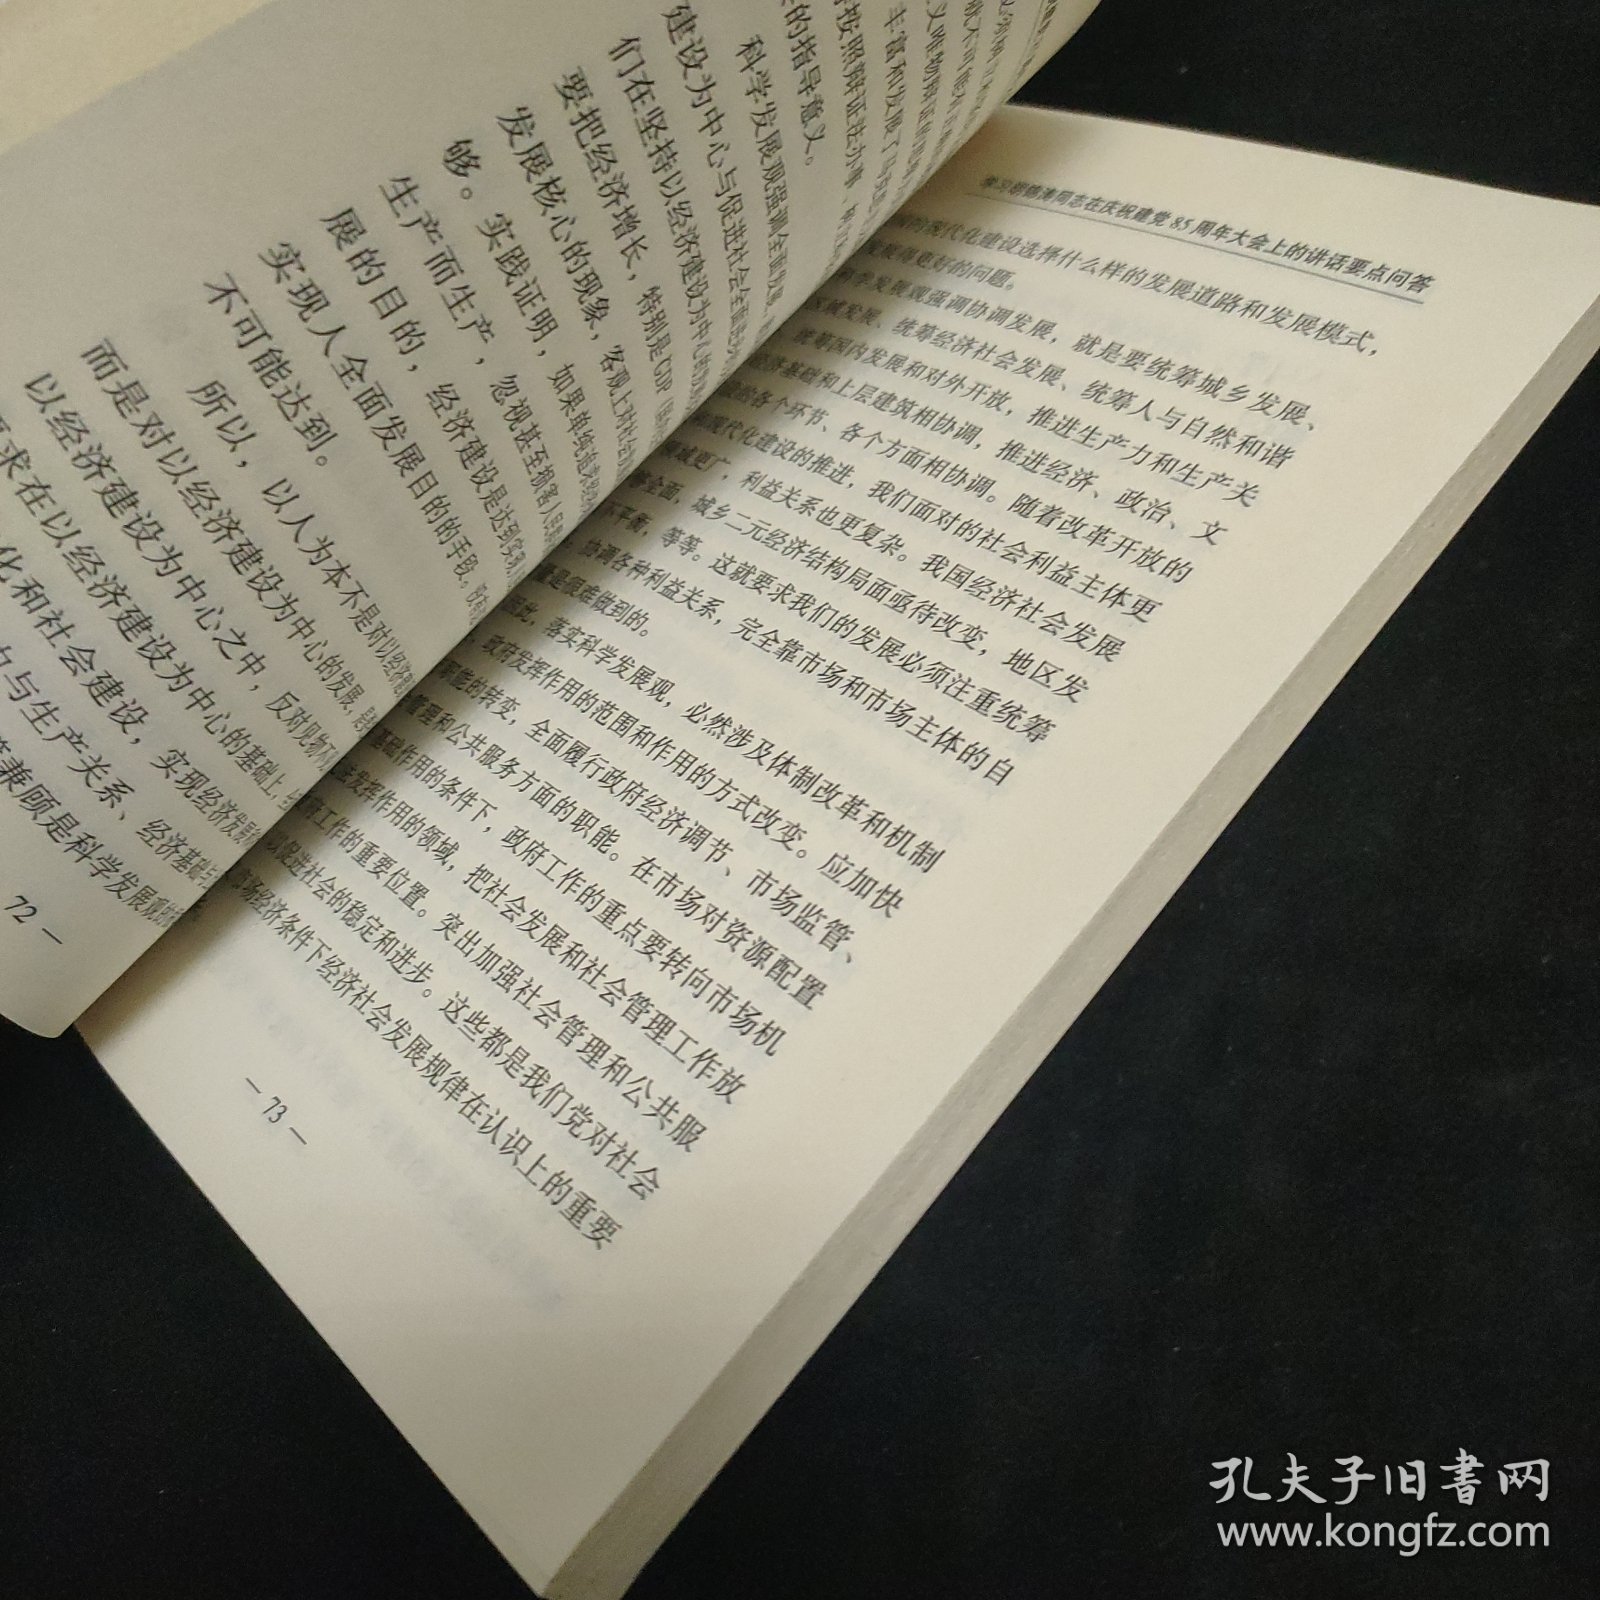 的指导意义。
科学发展观强调全面发展
建设为中心与促进社会全面
们在坚持以经济建设为中心
要把经济增长，特别是GDP
发展核心的现象，客观上对社会
够。实践证明，如果单纯
生产而生产，忽视甚至损害人民
展的目的，经济建设是达到实现
实现人全面发展目的的手段。
不可能达到。
所以，以人为本不是对以经济建
而是对以经济建设为中心的发展，
以经济建设为中心之中，反对见物不
求在以经济建设为中心的基础上，
化和社会建设，实现经济发展
力与生产关系、经济基础与
筹兼顾是科学发展观的
72 —
学习胡锦涛同志在庆祝建党85周年大会上的讲话要点问答
国的现代化建设选择什么样的发展道路和发展模式，
发展得更好的问题。
科学发展观强调协调发展，就是要统筹城乡发展、
区域发展、统筹经济社会发展、统筹人与自然和谐
统筹国内发展和对外开放，推进生产力和生产关
经济基础和上层建筑相协调，推进经济、政治、文
的各个环节、各个方面相协调。随着改革开放的
现代化建设的推进，我们面对的社会利益主体更
领域更广，利益关系也更复杂。我国经济社会发展
够全面，城乡二元经济结构局面亟待改变，地区发
不平衡，等等。这就要求我们的发展必须注重统筹
协调各种利益关系，完全靠市场和市场主体的自
量是很难做到的。
因此，落实科学发展观，必然涉及体制改革和机制
政府发挥作用的范围和作用的方式改变。应加快
职能的转变，全面履行政府经济调节、市场监管、
管理和公共服务方面的职能。在市场对资源配置
基础作用的条件下，政府工作的重点要转向市场机
法发挥作用的领域，把社会发展和社会管理工作放
府工作的重要位置。突出加强社会管理和公共服
以促进社会的稳定和进步。这些都是我们党对社会
市场经济条件下经济社会发展规律在认识上的重要
— 73 —
孔夫子旧书网
www.kongfz.com